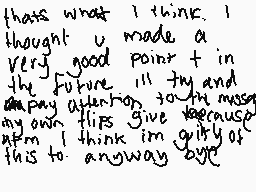 thats what I think. I
thought u made a
very good point + in
the future ill try and
pay attention to the messag
my own flips give because
atm I think im guilty of
this to. anyway bye